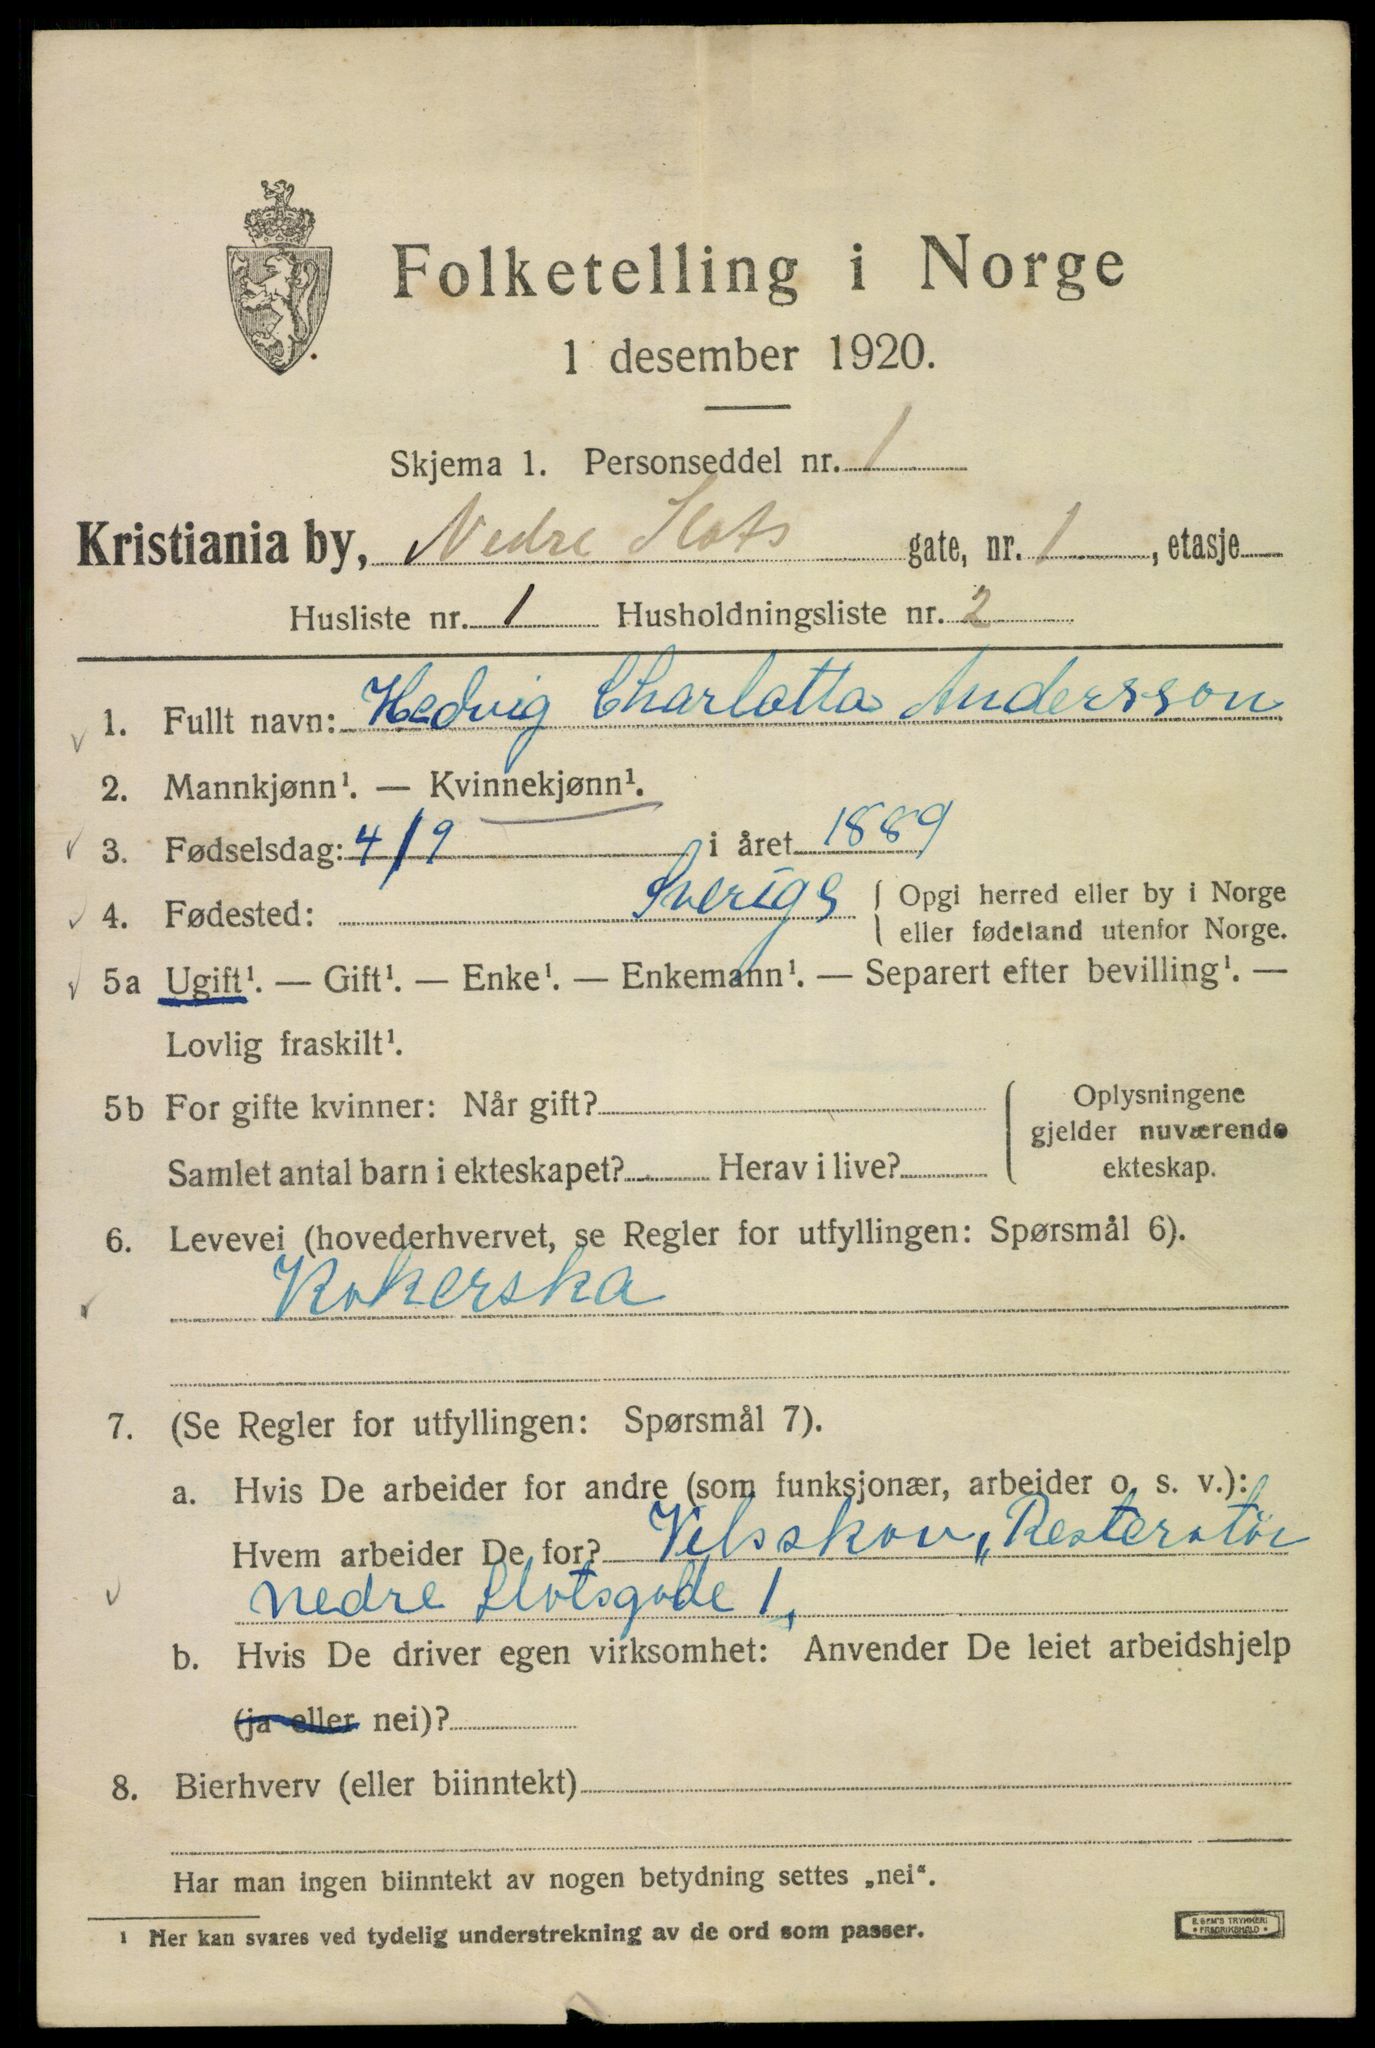 Folketelling i Norge
1 desember 1920.
Skjema 1. Personseddel nr. 1
Kristiania by, Nedre Slots gate, nr. 1, etasje
Husliste nr. 1 Husholdningsliste nr. 2
1. Fullt navn: Hedvig Charlotta Andersson
2. Mannkjønn¹. — Kvinnekjønn¹.
3. Fødselsdag: 4/9 i året 1889
4. Fødested: Sverige { Opgi herred eller by i Norge
eller fødeland utenfor Norge.
5a Ugift¹. — Gift¹. — Enke¹. — Enkemann¹. — Separert efter bevilling¹. —
Lovlig fraskilt¹.
5b For gifte kvinner: Når gift?
Samlet antal barn i ekteskapet? Herav i live?
Oplysningene
gjelder nuværende
ekteskap.
6. Levevei (hovederhvervet, se Regler for utfyllingen: Spørsmål 6).
Kokerska
7. (Se Regler for utfyllingen: Spørsmål 7).
a. Hvis De arbeider for andre (som funksjonær, arbeider o. s. v.):
Hvem arbeider De for? Vilsskov „Resteratör
Nedre Slotsgade 1.
b. Hvis De driver egen virksomhet: Anvender De leiet arbeidshjelp
(ja eller nei)?
8. Bierhverv (eller biinntekt)
Har man ingen biinntekt av nogen betydning settes „nei“.
¹ Her kan svares ved tydelig understrekning av de ord som passer.
E. SEM'S TRYKKERI
• FREDRIKSHALD •